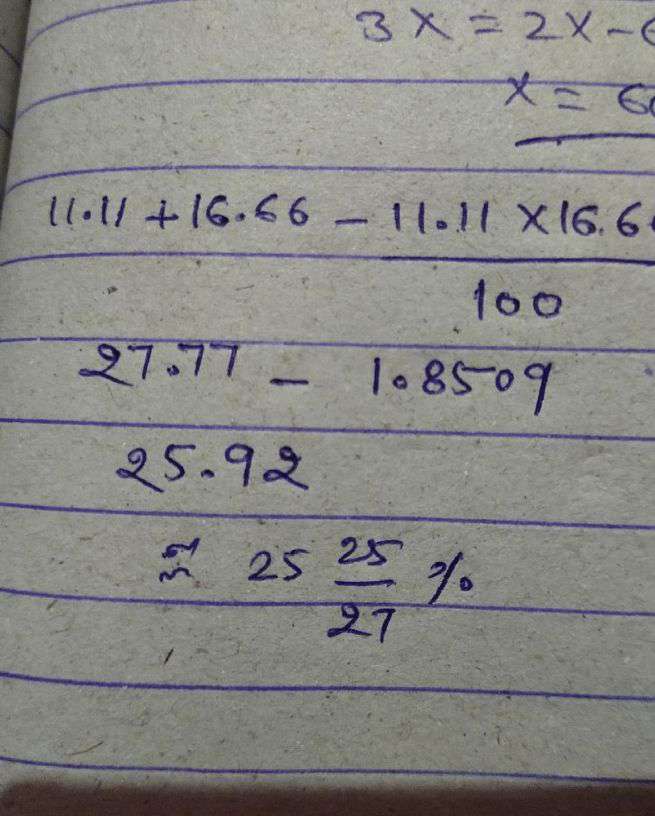 3x = 2x -
x = 6
11.11 + 16.66 - 11.11 × 16.6
100
27.77 - 1.8509
25.92
≈ 25 25/27 %